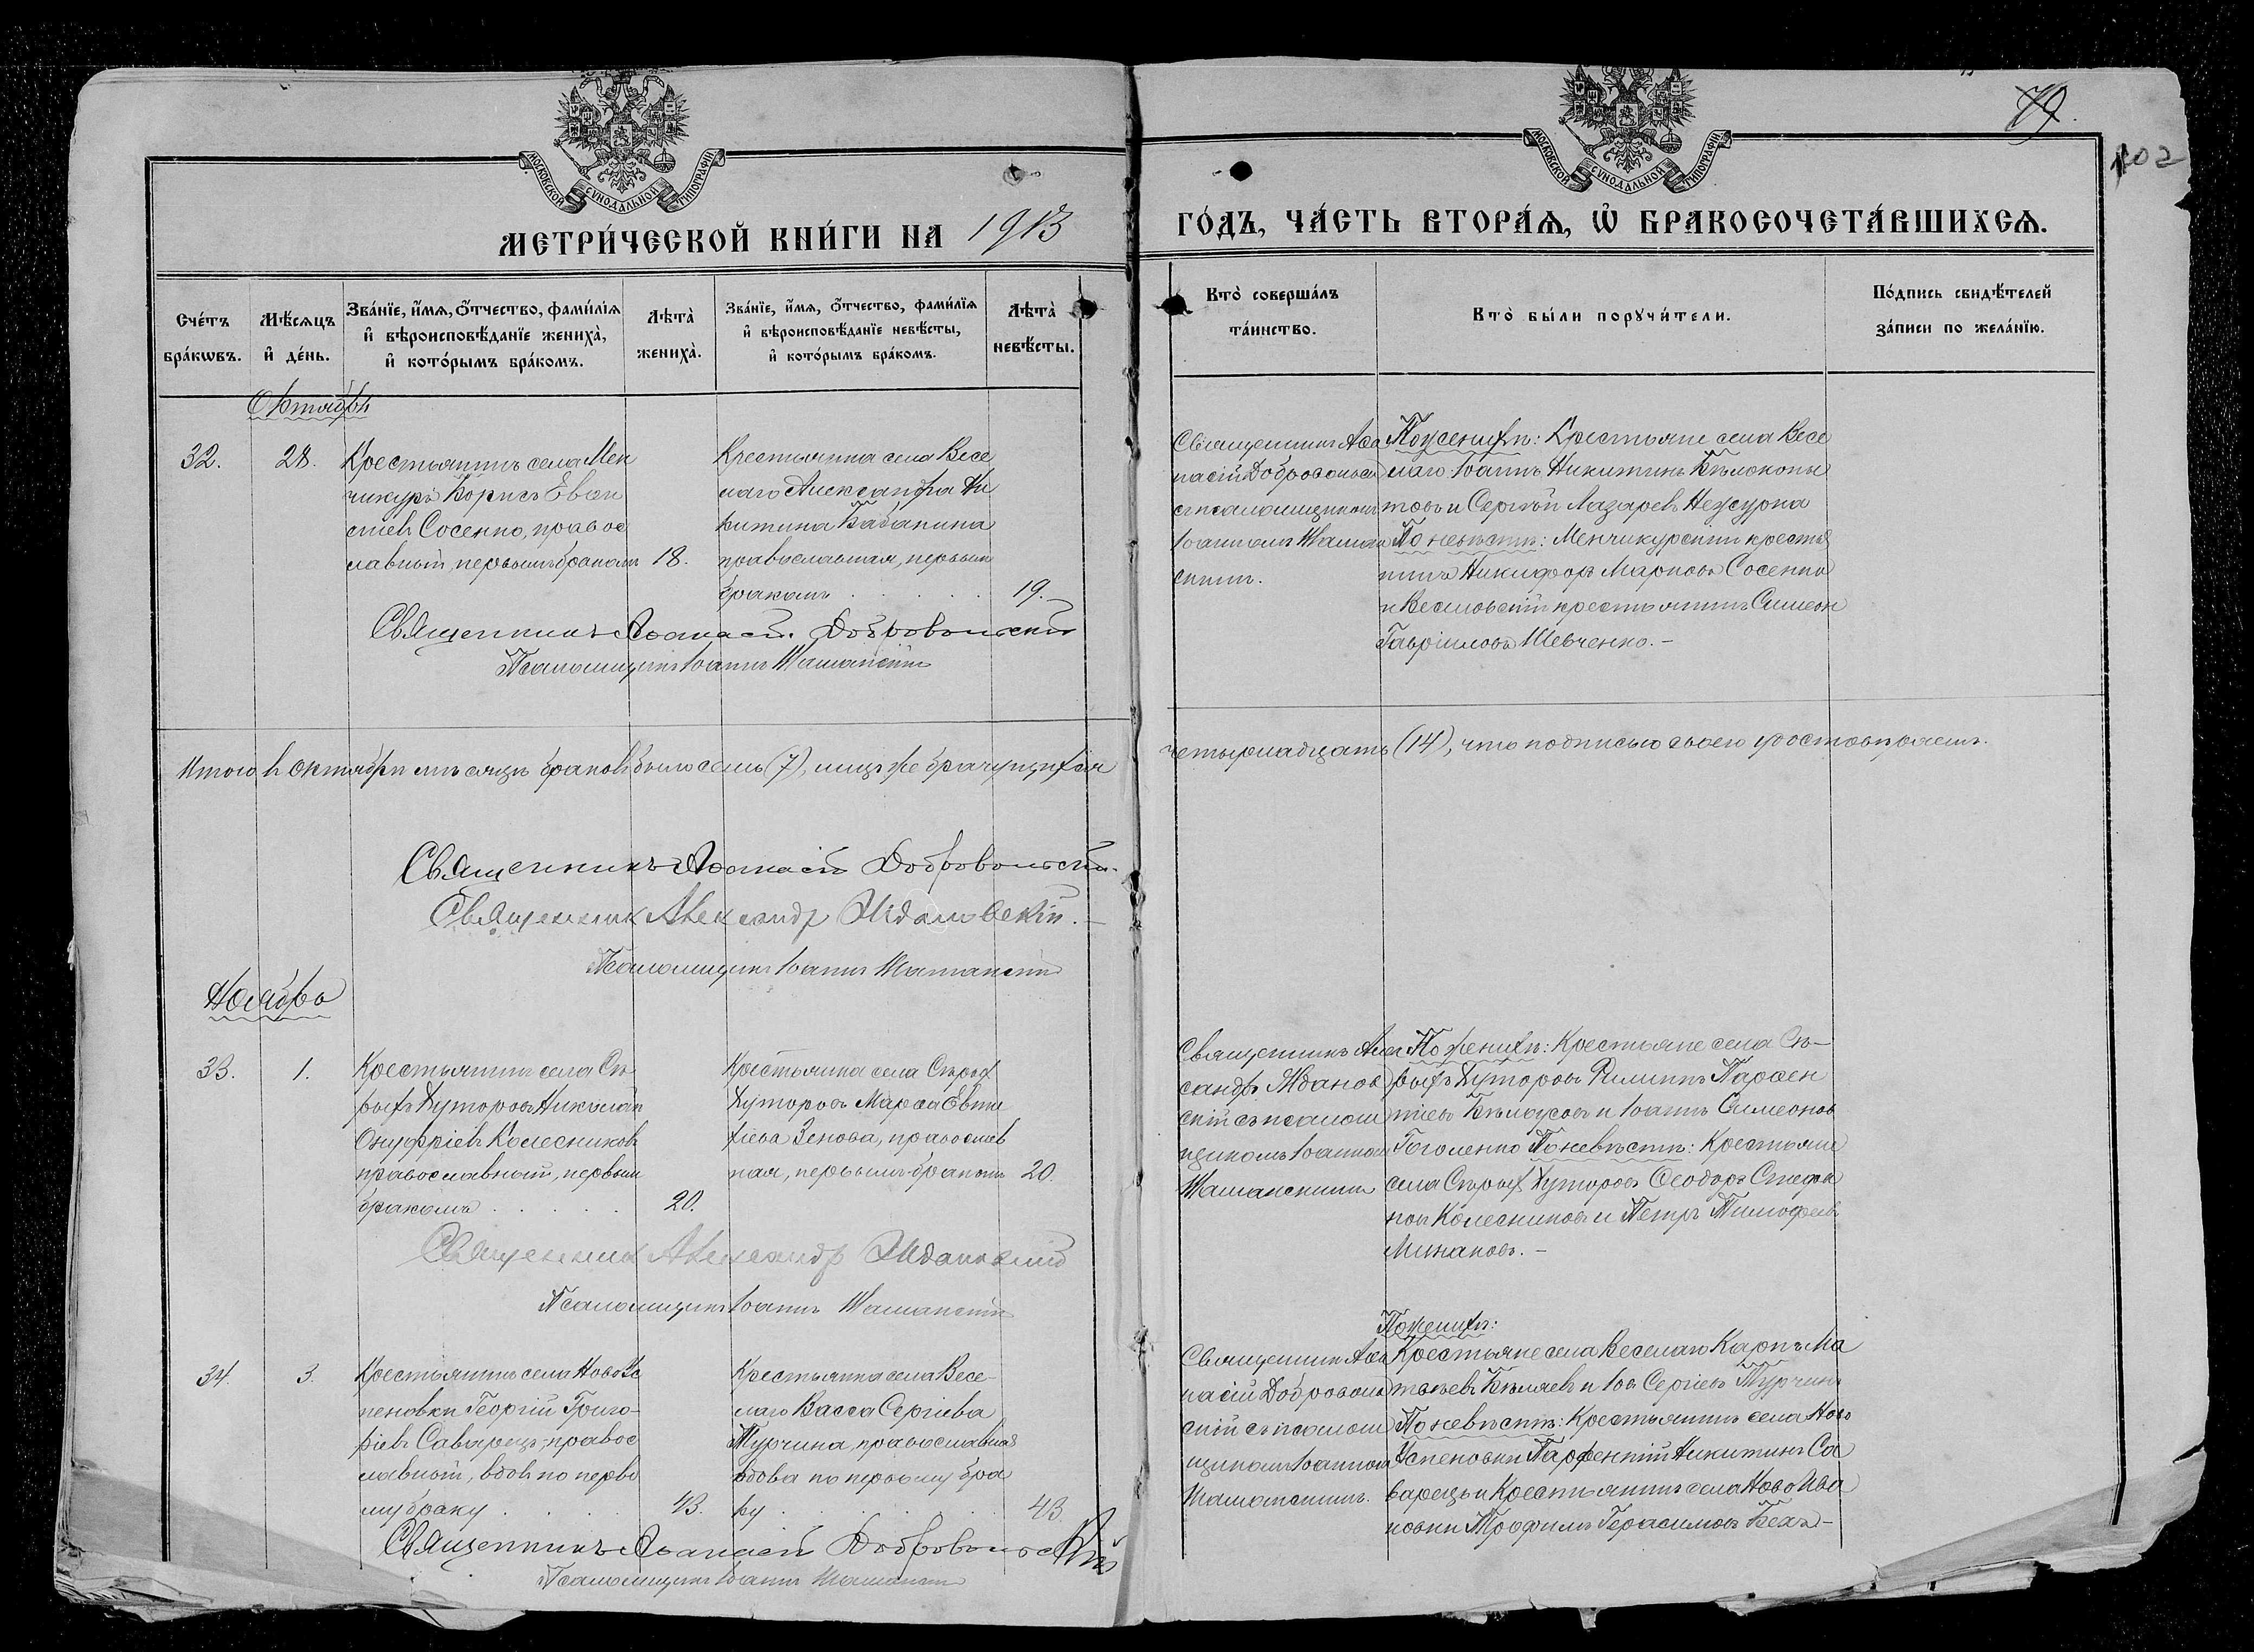 79.
102
МОСКОВСКОЙ СУНОДАЛЬНОЙ ТИПОГРАФІИ
МОСКОВСКОЙ СУНОДАЛЬНОЙ ТИПОГРАФІИ
МЕТРИ́ЧЕСКОЙ КНИ́ГИ НА 1913
ГО́ДЪ, ЧА́СТЬ ВТОРА́Ѧ, Ѡ҆ БРАКОСОЧЕТА́ВШИХСѦ.
Сче́тъ
бра́кѡвъ.
Мѣ́сѧцъ
и҆ де́нь.
Зва́нїе, и҆́мѧ, ѻ҆́тчество, фами́лїѧ
и҆ вѣроисповѣ́данїе жениха̀,
и҆ кото́рымъ бра́комъ.
Лѣта̀
жениха̀.
Зва́нїе, и҆́мѧ, ѻ҆́тчество, фами́лїѧ
и҆ вѣроисповѣ́данїе невѣ́сты,
и҆ кото́рымъ бра́комъ.
Лѣта̀
невѣ́сты.
Кто̀ соверша́лъ
та́инство.
Кто̀ бы́ли порꙋчи́тели.
По́дпись свидѣ́телей
за́писи по жела́нїю.
Октябрь
32.
28.
Крестьянинъ села Мен
чикуръ Борисъ Евѳи
міевъ Сосенко, правос
лавный, первымъ бракомъ
18.
Крестьянка села Весе
лаго Александра Ни
китина Бабанина
православная, первымъ
бракомъ
19.
Священникъ Аѳа
насій Добровольскій
съ псаломщикомъ
Іоанномъ Шаман
скимъ.
По женихѣ: Крестьяне села Весе
лаго Іоаннъ Никитинъ Бѣлокопы
товъ и Сергѣй Лазаревъ Нежурка
По невѣстѣ: Менчикурскій крестья
нинъ Никифоръ Марковъ Сосенко
и Веселовскій крестьянинъ Симеон
Гавріиловъ Шевченко. -
Священникъ Аѳанасій Добровольскій
Псаломщикъ Іоаннъ Шаманскій
Итого въ октябрѣ мѣсяцѣ браковъ было семь (7), лицъ же брачущихся
четырнадцать (14), что подписью своею удостовѣряемъ.
Священникъ Аѳанасій Добровольскій.
Священник Александр Ждановскій. -
Псаломщикъ Іоаннъ Шаманскій
Ноябрь
33.
1.
Крестьянинъ села Сѣ
рыхъ Хуторовъ Николай
Онуфріевъ Колесниковъ
православный, первымъ
бракомъ
20.
Крестьянка села Сѣрых
Хуторовъ Марѳа Евти
хіева Зенова, православ
ная, первымъ бракомъ
20.
Священникъ Алек
сандръ Жданов
скій съ псалом
щикомъ Іоанном
Шаманскимъ
По женихѣ: Крестьяне села Сѣ-
рыхъ Хуторовъ Филиппъ Парѳен
тіевъ Бѣлоусовъ и Іоаннъ Симеонов
Гоголенко По невѣстѣ: Крестьяне
села Сѣрых Хуторовъ Ѳеодоръ Стефа
новъ Колесниковъ и Петръ Тимофеевъ
Минаковъ. -
Священник Александр Ждановскій
Псаломщикъ Іоаннъ Шаманскій
34.
3.
Крестьянинъ села Ново Ус
пеновки Георгій Григо-
ріевъ Саварецъ, правос
лавный, вдовъ по перво
му браку
43.
Крестьянка села Весе-
лаго Васса Сергіева
Турчина, православная
вдова по первому бра
ку
43.
Священникъ Аѳа
насій Доброволь
скій съ псалом
щикомъ Іоанном
Шаманскимъ.
По женихѣ:
Крестьяне села Веселаго Карпъ Ма
твѣевъ Бѣляевъ и Іовъ Сергіевъ Турчинъ
По невѣстѣ: Крестьянинъ села Ново
Успеновки Парфентій Никитинъ Са
варецъ и Крестьянинъ села Ново Ива
новки Трофимъ Герасимовъ Бехъ -
Священникъ Аѳанасій Добровольскій
Псаломщикъ Іоаннъ Шаманскій